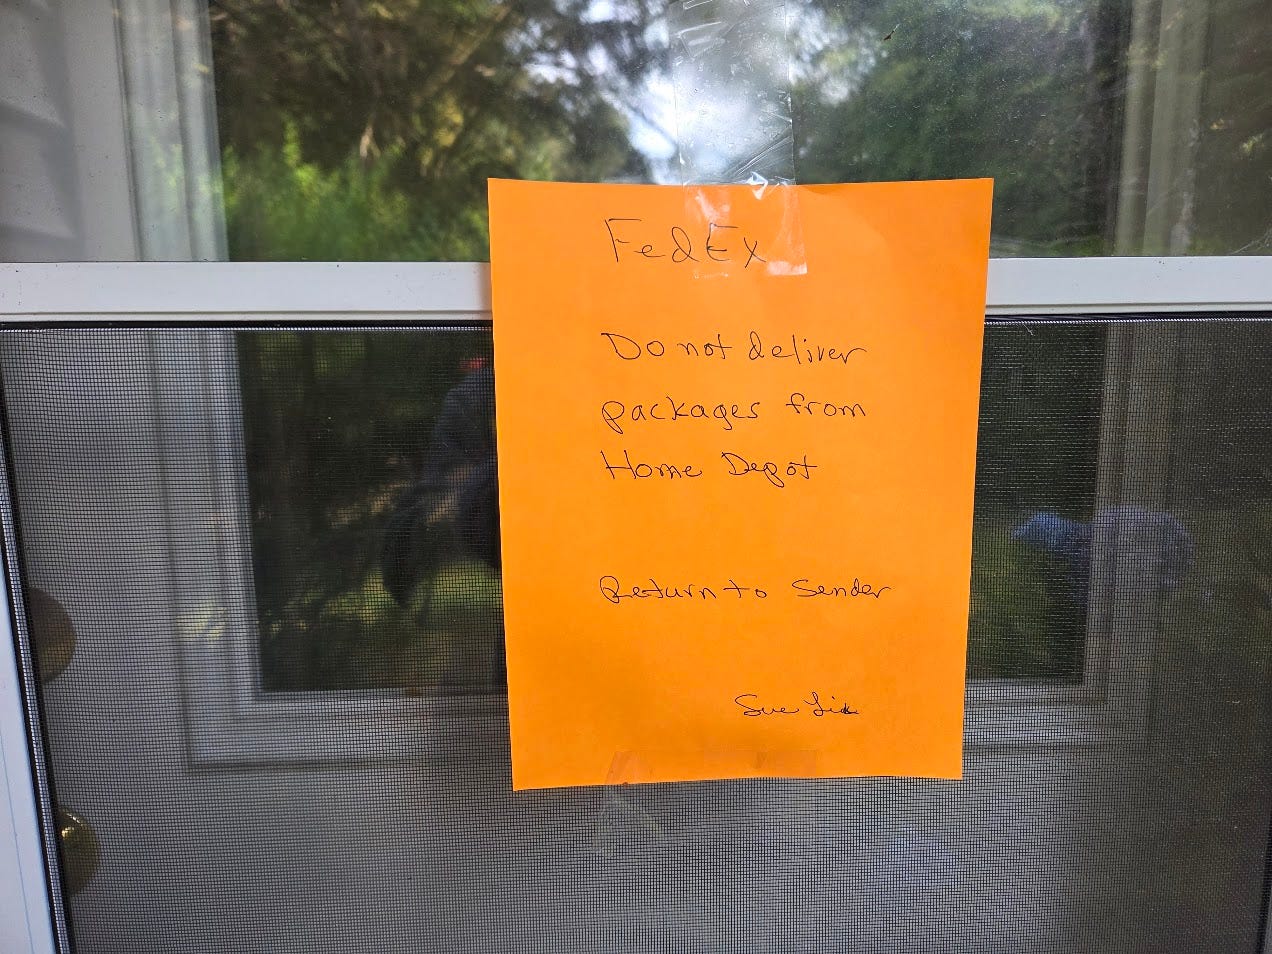 FedEx
Do not deliver
packages from
Home Depot
Return to Sender
Sue